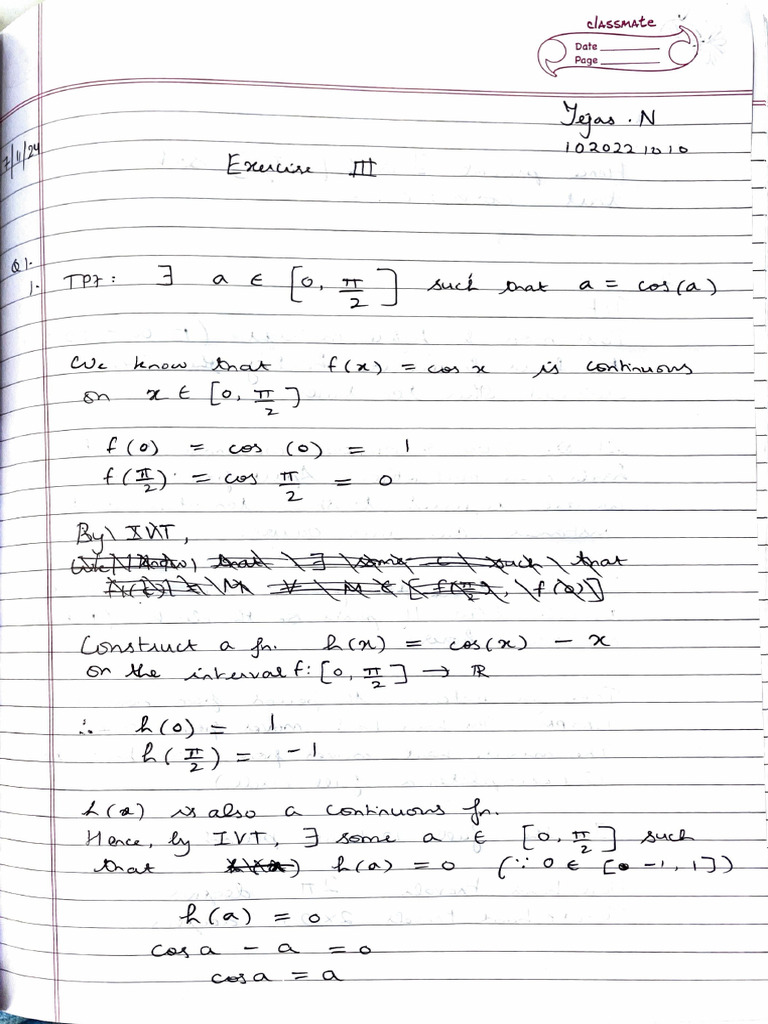 classmate
Date
Page
Tejas . N
1020221010
7/11/24
Exercise III
Q1.
1. TPT: ∃ a ∈ [0, π/2] such that a = cos(a)
We know that f(x) = cos x is continuous
on x ∈ [0, π/2]
f(0) = cos (0) = 1
f(π/2) = cos π/2 = 0
By IVT,
Construct a fn. h(x) = cos(x) - x
on the interval f: [0, π/2] → ℝ
∴ h(0) = 1
h(π/2) = -1
h(x) is also a continuous fn.
Hence, by IVT, ∃ some a ∈ [0, π/2] such
that h(a) = 0 (∵ 0 ∈ [-1, 1])
h(a) = 0
cos a - a = 0
cos a = a